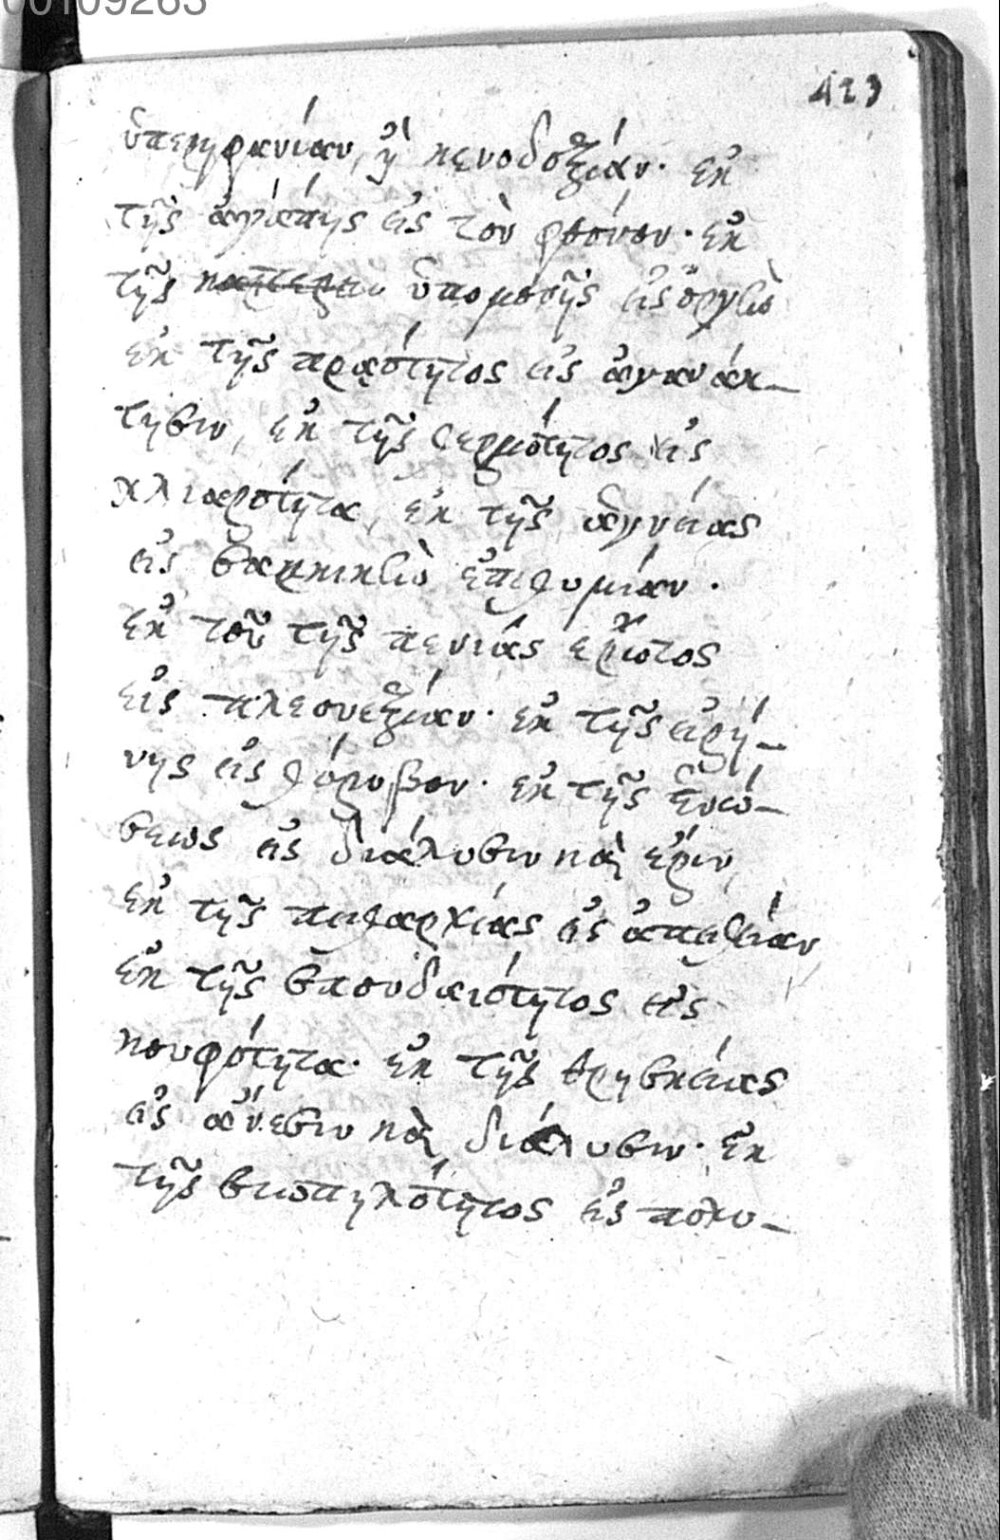 00109263
423
ὑπερηφανίαν, ἢ κενοδοξίαν· ἐκ
τῆς ἀγάπης εἰς τὸν φθόνον· ἐκ
τῆς ὑπομονῆς εἰς ὀργὴν
ἐκ τῆς πραότητος εἰς ἀγανάκ-
τησιν, ἐκ τῆς θερμότητος εἰς
χλιαρότητα, ἐκ τῆς ἁγνείας
εἰς σαρκικὴν ἐπιθυμίαν.
ἐκ τοῦ τῆς πενίας ἔρωτος
εἰς πλεονεξίαν· ἐκ τῆς εἰρή-
νης εἰς θόρυβον· ἐκ τῆς ἑνώ-
σεως εἰς διάλυσιν καὶ ἔριν,
ἐκ τῆς πειθαρχίας εἰς ἀπείθειαν,
ἐκ τῆς σπουδαιότητος εἰς
κουφότητα· ἐκ τῆς θρησκείας
εἰς ἄνεσιν καὶ διάλυσιν· ἐκ
τῆς σιωπηλότητος εἰς πολυ-